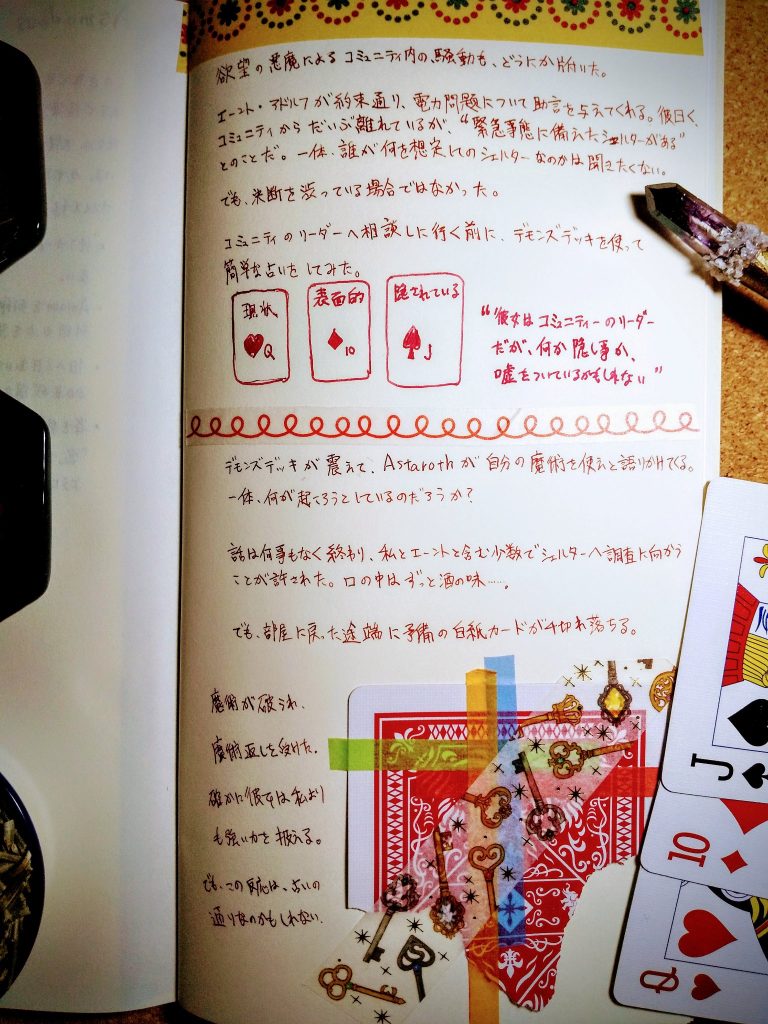 欲望の悪魔によるコミュニティ内の騒動も、どうにか片付いた。
エーント・アドルフが約束通り、電力問題について助言を与えてくれる。彼曰く、
コミュニティからだいぶ離れているが、“緊急事態に備えたシェルターがある”
とのことだ。一体、誰が何を想定してのシェルターなのかは聞きたくない。
でも、決断を渋っている場合ではなかった。
コミュニティのリーダーへ相談しに行く前に、デモンズデッキを使って
簡単な占いをしてみた。
現状
♥Q
表面的
♦10
隠されている
♠J
“彼女はコミュニティーのリーダー
だが、何か隠し事か、
嘘をついているかもしれない”
デモンズデッキが震えて、Astarothが自分の魔術を使えと語りかけてくる。
一体、何が起ころうとしているのだろうか?
話は何事もなく終わり、私とエーントと含む少数でシェルターへ調査に向かう
ことが許された。口の中はずっと酒の味……。
でも、部屋に戻った途端に予備の白紙カードが千切れ落ちる。
魔術が破られ、
魔術返しを受けた。
確かに彼女は私より
も強い力を扱える。
でも、この反応は、占いの
通りなのかもしれない。
J
10
Q